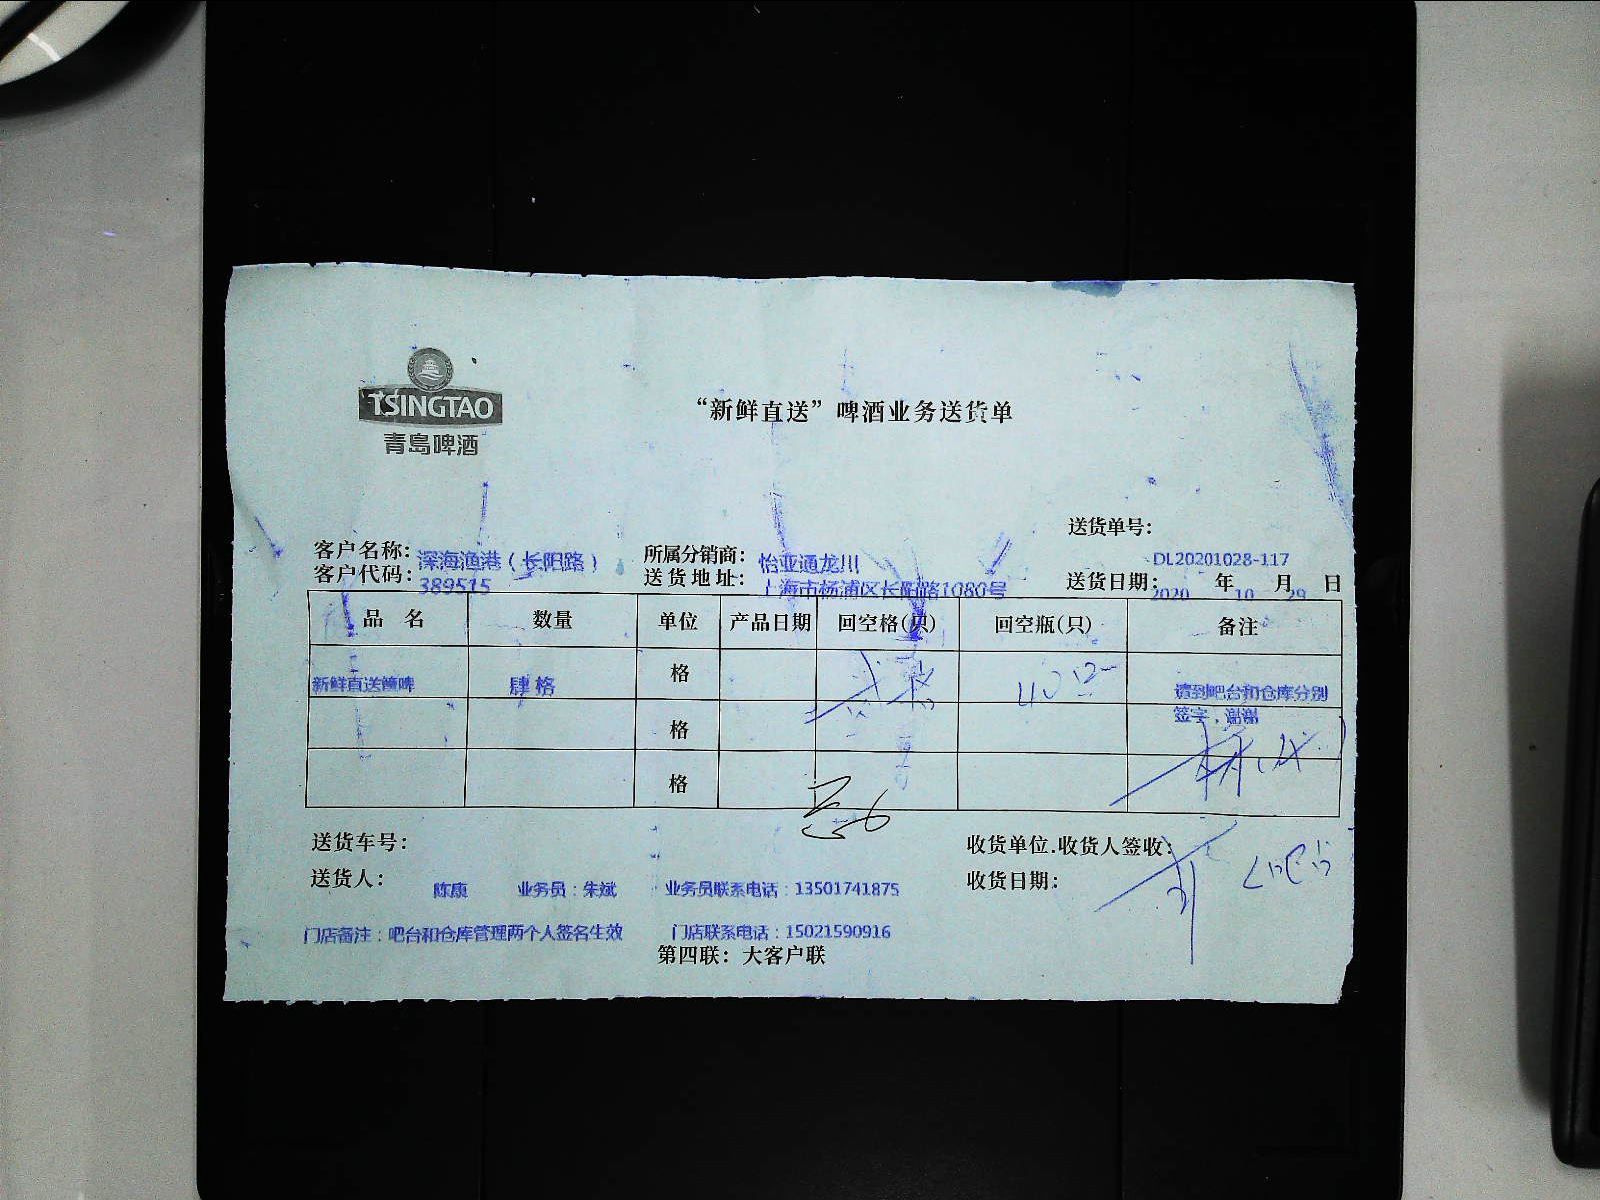 TSINGTAO
青岛啤酒
“新鲜直送”啤酒业务送货单
送货单号:
DL20201028-117
客户名称: 深海渔港（长阳路） 所属分销商: 怡亚通龙川
客户代码: 389515 送货地址: 上海市杨浦区长阳路1080号 送货日期: 2020 年 10 月 29 日
品 名 数量 单位 产品日期 回空格(只) 回空瓶(只) 备注
新鲜直送 肆格 格 请到吧台和仓库分别
签字，谢谢
格
格
送货车号:
收货单位.收货人签收:
送货人: 陈康 业务员：朱斌 业务员联系电话：13501741875 收货日期:
门店备注：吧台和仓库管理两个人签名生效 门店联系电话：15021590916
第四联: 大客户联